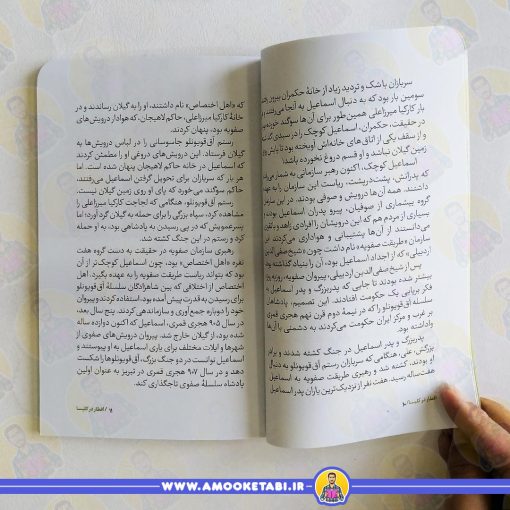 سربازان با شک و تردید زیاد از خانهٔ حکمران بیرون رفتند.
سومین بار بود که به دنبال اسماعیل به آنجا می‌رفتند و
بار کارکیا میرزاعلی همین طور برای آن‌ها سوگند خورده بود.
در حقیقت، حکمران، اسماعیل کوچک را در سبدی گذاشته
و از سقف یکی از اتاق‌های خانه‌اش آویخته بود تا پایش روی
زمین گیلان نباشد و او قسم دروغ نخورده باشد!
اسماعیل کوچک، اکنون رهبر سازمانی به شمار می‌رفت
که پدرانش، پشت‌درپشت، ریاست این سازمان را به عهده
داشتند. همه آن‌ها درویش و صوفی بودند. در این سازمان
گروه بیشماری از صوفیان، پیرو پدران اسماعیل بودند و
بسیاری از مردم هم که این درویشان را افرادی زاهد و باتقوا
می‌دانستند از آن‌ها پشتیبانی و هواداری می‌کردند. این
سازمان «طریقت صفویه» نام داشت چون «شیخ صفی‌الدین
اردبیلی» که از اجداد اسماعیل بود، آن را بنیاد گذاشته بود.
پس از شیخ صفی‌الدین اردبیلی، پیروان صفویه، روزبه‌روز
بیشتر شده بودند تا جایی که پدربزرگ و پدر اسماعیل به
فکر برپایی یک حکومت افتادند. این تصمیم، پادشاهان
سلسلهٔ آق‌قویونلو را که در نیمهٔ دوم قرن نهم هجری قمری
بر غرب و مرکز ایران حکومت می‌کردند به دشمنی با آن‌ها
واداشته بود.
پدربزرگ و پدر اسماعیل در جنگ کشته شدند و برادر
بزرگش، علی، هنگامی که سربازان رستم آق‌قویونلو به دنبال
او بودند، کشته شد و رهبری طریقت صفویه به اسماعیل
هفت‌ساله رسید. هفت نفر از نزدیک‌ترین یاران پدر اسماعیل
افطار در کلیسا /
که «اهل اختصاص» نام داشتند، او را به گیلان رساندند و در
خانهٔ کارکیا میرزاعلی، حاکم لاهیجان، که هوادار درویش‌های
صفویه بود، پنهان کردند.
رستم آق‌قویونلو جاسوسانی را در لباس درویش‌ها به
گیلان فرستاد. این درویش‌های دروغی او را مطمئن کردند
که اسماعیل در خانه حاکم لاهیجان پنهان شده است. اما
هر بار که سربازان برای تحویل گرفتن اسماعیل می‌رفتند،
حاکم سوگند می‌خورد که پای او روی زمین گیلان نیست.
رستم آق‌قویونلو، هنگامی که لجاجت کارکیا میرزاعلی را
مشاهده کرد، سپاه بزرگی را برای حمله به گیلان گردآورد؛ اما
پسرعمویش که در پی رسیدن به پادشاهی بود، به او حمله
کرد و رستم در این جنگ کشته شد.
رهبری سازمان صفویه در حقیقت به دست گروه هفت
نفره «اهل اختصاص» بود، چون اسماعیل کوچک‌تر از آن
بود که بتواند ریاست طریقت صفویه را به عهده بگیرد. اهل
اختصاص از اختلافی که بین شاهزادگان سلسلهٔ آق‌قویونلو
برای رسیدن به قدرت پیش آمده بود، استفاده کردند و پیروان
خود را دوباره جمع‌آوری و سازماندهی کردند. پنج سال بعد،
در سال ۹۰۵ هجری قمری، اسماعیل که اکنون دوازده ساله
شده بود، از گیلان خارج شد. پیروان درویش‌های صفوی از
شهرها و ایلات مختلف برای یاری اسماعیل به او پیوستند و
اسماعیل توانست در دو جنگ بزرگ، آق‌قویونلوها را شکست
دهد و در سال ۹۰۷ هجری قمری در تبریز به عنوان اولین
پادشاه سلسلهٔ صفوی تاجگذاری کند.
/ افطار در کلیسا
WWW.AMOOKETABI.IR